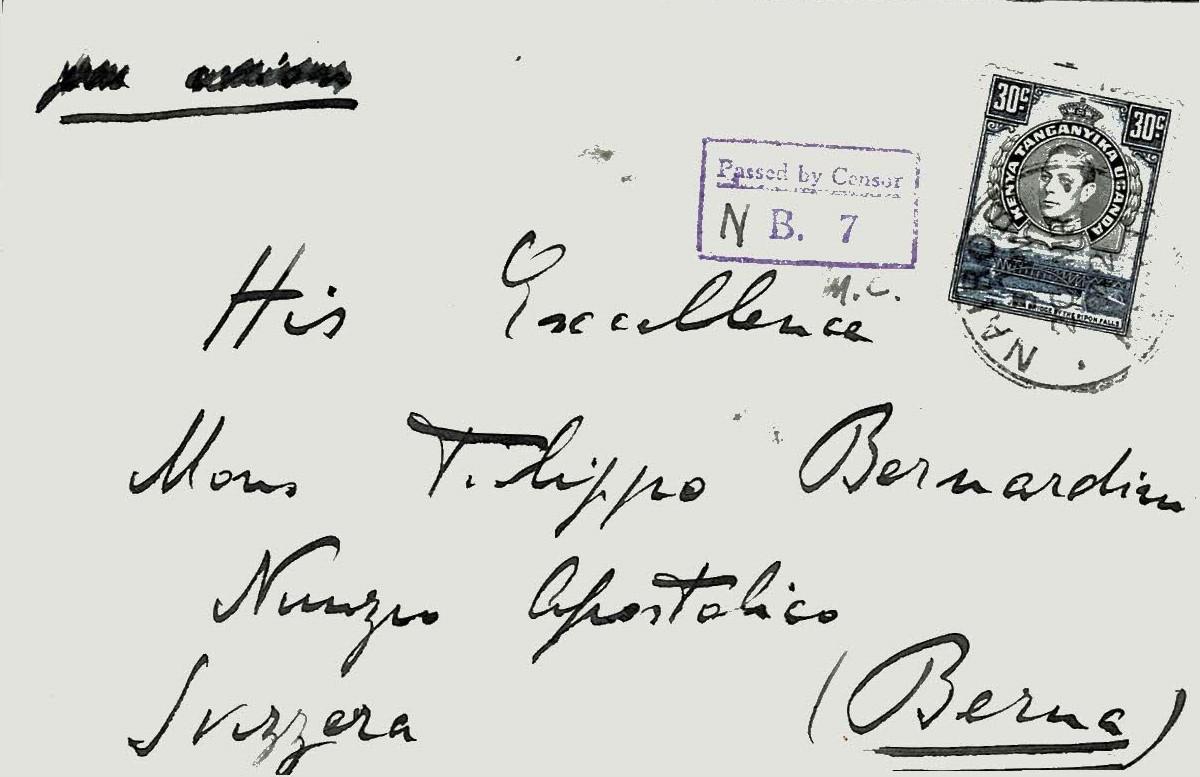 30c 30c
KENYA TANGANYIKA UGANDA
BRIDGE BY THE RIPON FALLS
Passed by Censor
N B. 7
M.C.
His Excellence
Mons Filippo Bernardini
Nunzio Apostolico
Svizzera (Berna)